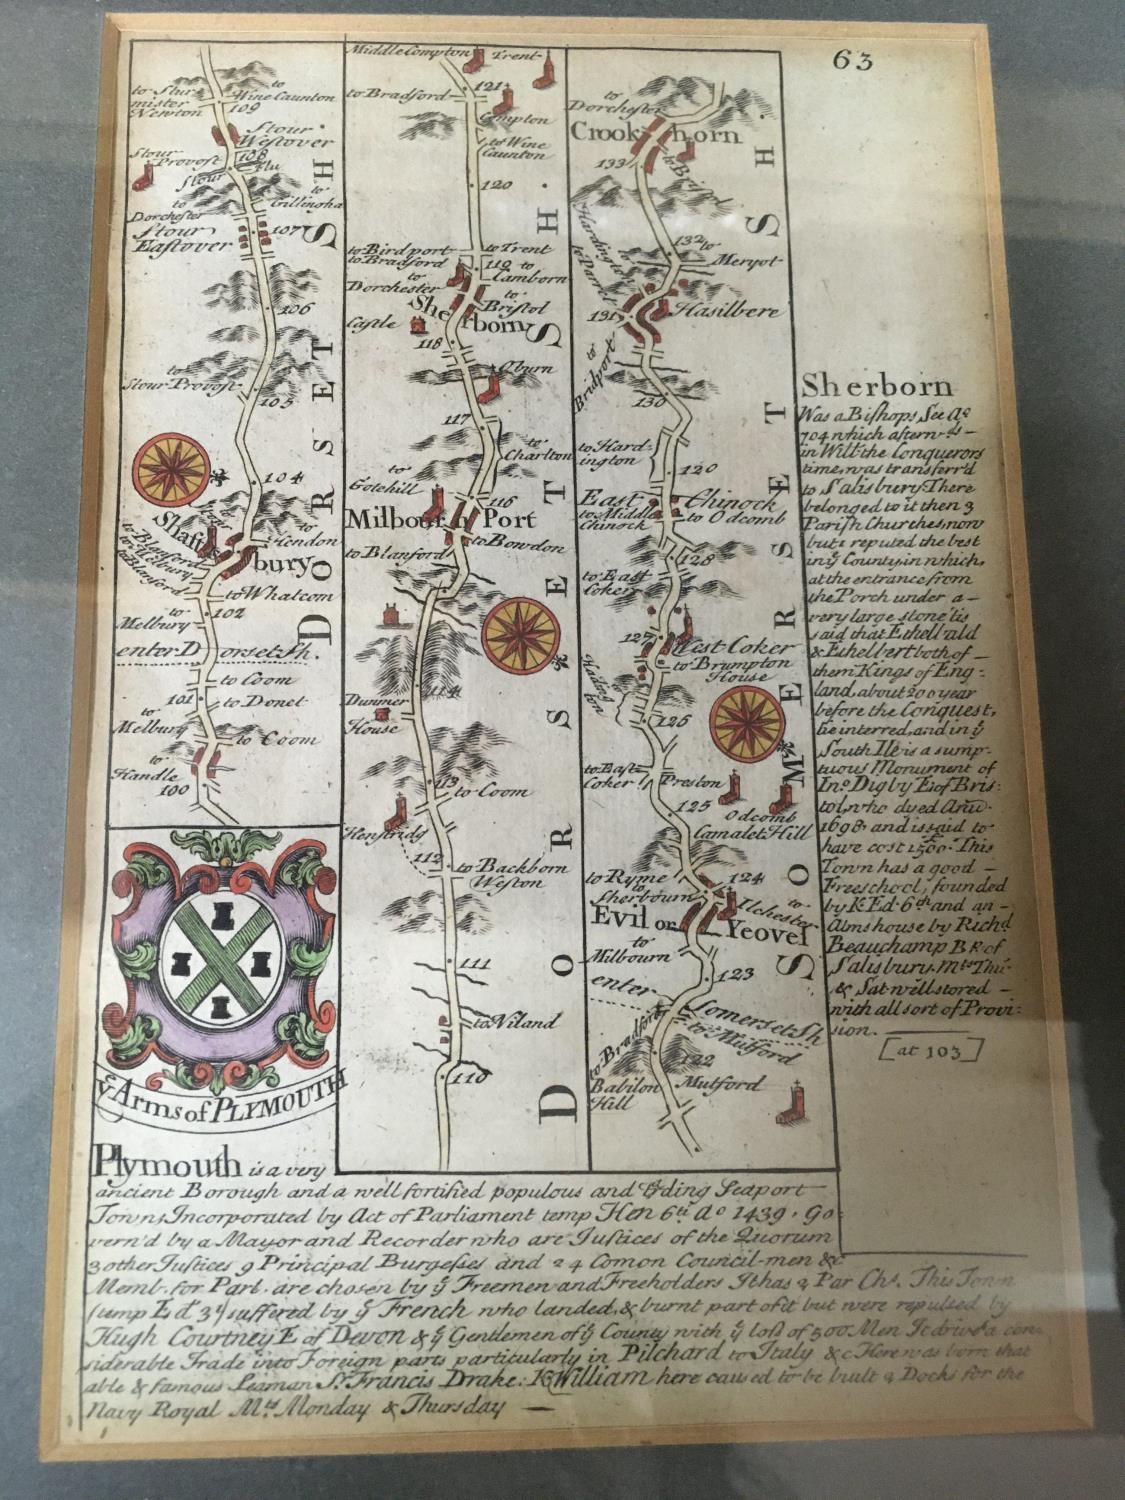 63
to Stur
mister
Newton
to
Wine Caunton
109
Stour
Westover
Stour
Provost
108
Stour
flu
to
Gillingha
to
Dorchester
Stour
Eastover
107
106
to
Stour Provost
105
104
to
London
Shafts bury
to Blanford
to Melbury
to Blanford
to Whatcom
102
to
Melbury
enter Dorset Sh.
to Coom
101
to Donet
to
Melbury
to Coom
to
Handle
100
DORSET SH
Middle Compton
Trent
121
to Bradford
Compton
to Wine
Caunton
120
to Birdport
to Trent
to Bradford
119
to
Camborn
to
Dorchester
to
Bristol
Sherborn
Castle
118
Oburn
117
to
Charlton
to
Gotehill
116
Milbourn Port
to Bowdon
to Blanford
114
Dunmer
House
113
to Coom
Henstridg
112
to Backborn
Weston
111
to Niland
110
DORSET SH.
to
Dorchester
Crookhorn
133
to Bristol
132
to
Meryot
Hardington
to Parret
131
Hasilbere
to
Bridport
130
to Hard-
ington
120
East Chinock
to Middle
Chinock
to Odcomb
128
to East
Coker
127
West Coker
to Brumpton
House
126
to East
Coker
Preston
125
Odcomb
Camalet Hill
to Ryme
124
to
Sherbourn
to
Ilchester
Evil or Yeovel
to
Milbourn
123
enter Somerset Sh
to Mutford
to Bradford
122
Babilon
Hill
Mutford
SOMERSET SH.
Sherborn
Was a Bishops See Ao
704 which afterwds
in Will the Conquerors
time, was transferr'd
to Salisbury There
belonged to it then 3
Parish Churches, now
but 1 reputed the best
in ẏ County in which,
at the entrance from
the Porch under a
very large stone tis
said that Ethellvald
& Ethelbert both of
them Kings of Eng-
land, about 200 year
before the Conquest,
lie interred, and in ẏ
South Ile is a sump-
tuous Monument of
Ino Digby E of Bris:
tol, who dyed Ano
1698 and is said to
have cost 1500. This
Town has a good
Freeschool, founded
by K Ed. 6th and an
Almshouse by Richd
Beauchamp Bp of
Salisbury. Mts Thu:
& Sat. well stored
with all sort of Provi:
sion.
[at 103]
ẏ Arms of PLYMOUTH
Plymouth is a very
ancient Borough and a well fortified populous and trding Seaport
Town, Incorporated by Act of Parliament temp Hen 6ti Ao 1439. Go:
vern'd by a Mayor and Recorder who are Justices of the Quorum
3 other Justices 9 Principal Burgesses and 24 Comon Council-men &c
Memb. for Parl. are chosen by ẏ Freemen and Freeholders It has 2 Par Chs. This Town
(temp Ed 3d) suffered by ẏ French who landed, & burnt part of it but were repulsed by
Hugh Courtney E of Devon & ẏ Gentlemen of ẏ County with ẏ loss of 500 Men It drives a con
siderable Trade into Foreign parts particularly in Pilchard to Italy &c Here was born that
able & famous Seaman Sr. Francis Drake: K William here caused to be built 2 Docks for the
Navy Royal Mts Monday & Thursday